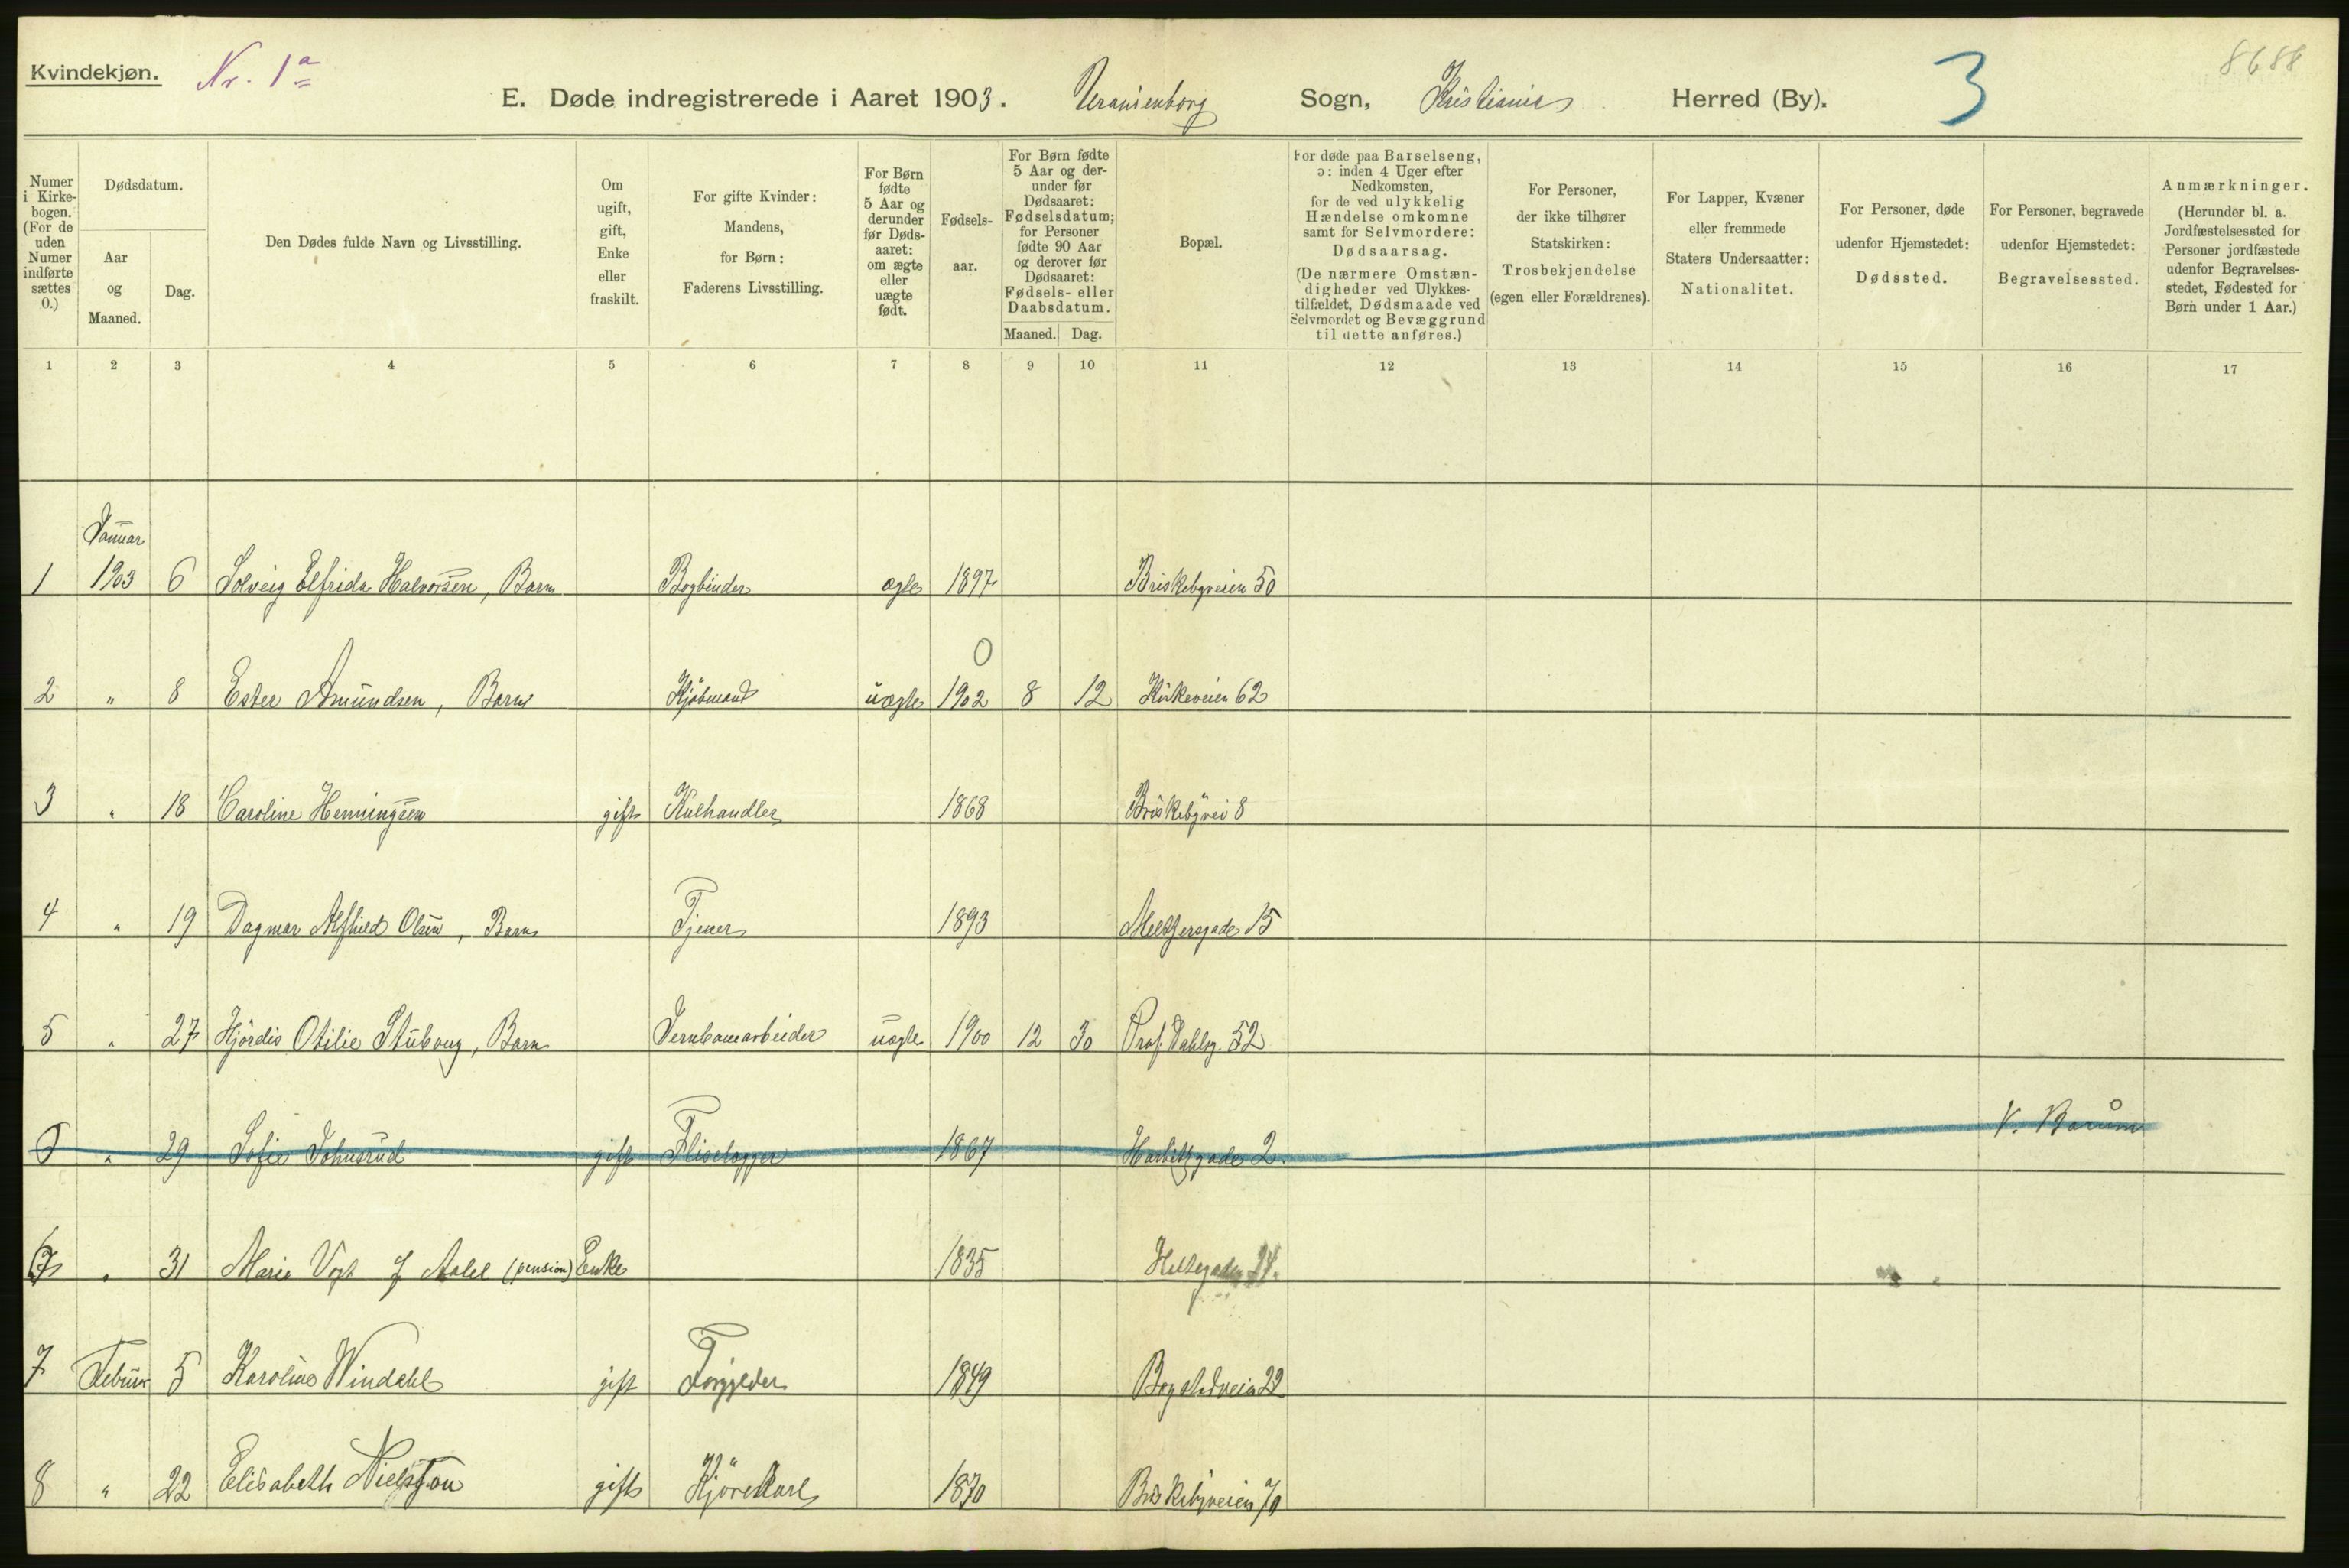 Kvindekjøn.
Nr. 1a
8688
E. Døde indregistrerede i Aaret 1903. Uranienborg Sogn, Kristiania Herred (By).
3
Numer i Kirkebogen. (For de uden Numer indførte sættes 0.)
Dødsdatum.
Aar og Maaned.
Dag.
Den Dødes fulde Navn og Livsstilling.
Om ugift, gift, Enke eller fraskilt.
For gifte Kvinder: Mandens, for Børn: Faderens Livsstilling.
For Børn fødte 5 Aar og derunder før Dødsaaret: om ægte eller uægte født.
Fødselsaar.
For Børn fødte 5 Aar og derunder før Dødsaaret: Fødselsdatum; for Personer fødte 90 Aar og derover før Dødsaaret: Fødsels- eller Daabsdatum.
Maaned. Dag.
Bopæl.
For døde paa Barselseng, ɔ: inden 4 Uger efter Nedkomsten, for de ved ulykkelig Hændelse omkomne samt for Selvmordere: Dødsaarsag. (De nærmere Omstændigheder ved Ulykkestilfældet, Dødsmaade ved Selvmordet og Bevæggrund til dette anføres.)
For Personer, der ikke tilhører Statskirken: Trosbekjendelse (egen eller Forældrenes).
For Lapper, Kvæner eller fremmede Staters Undersaatter: Nationalitet.
For Personer, døde udenfor Hjemstedet: Dødssted.
For Personer, begravede udenfor Hjemstedet: Begravelsessted.
Anmærkninger. (Herunder bl. a. Jordfæstelsessted for Personer jordfæstede udenfor Begravelsesstedet, Fødested for Børn under 1 Aar.)
1 2 3 4 5 6 7 8 9 10 11 12 13 14 15 16 17
Januar
1 1903 6 Solveig Elfrida Halvorsen, Barn Bogbinder ægte 1897 Briskebyveien 50
0
2 " 8 Ester Amundsen, Barn Kjøbmand uægte 1902 8 12 Kirkeveien 62
3 " 18 Caroline Henningsen gift Kulhandler 1868 Briskebyvei 8
4 " 19 Dagmar Alfhild Olsen, Barn Tjener 1893 Meltzersgade 15
5 " 27 Hjördis Otilie Stubong, Barn Jernbanearbeider uægte 1900 12 30 Prof. Dahlsg. 52
" 29 Sofie Johnsrud gift Fliselægger 1867 Harbitzgade 2. V. Bærum
" 31 Marie Vogt f Aalel (pension) Enke 1835 Heltzegaden
7 Februar 5 Karoline Windahl gift Forgylder 1849 Bogstadveien 22
8 " 22 Elisabeth gift Kjörekarl 1870 Briskebyveien